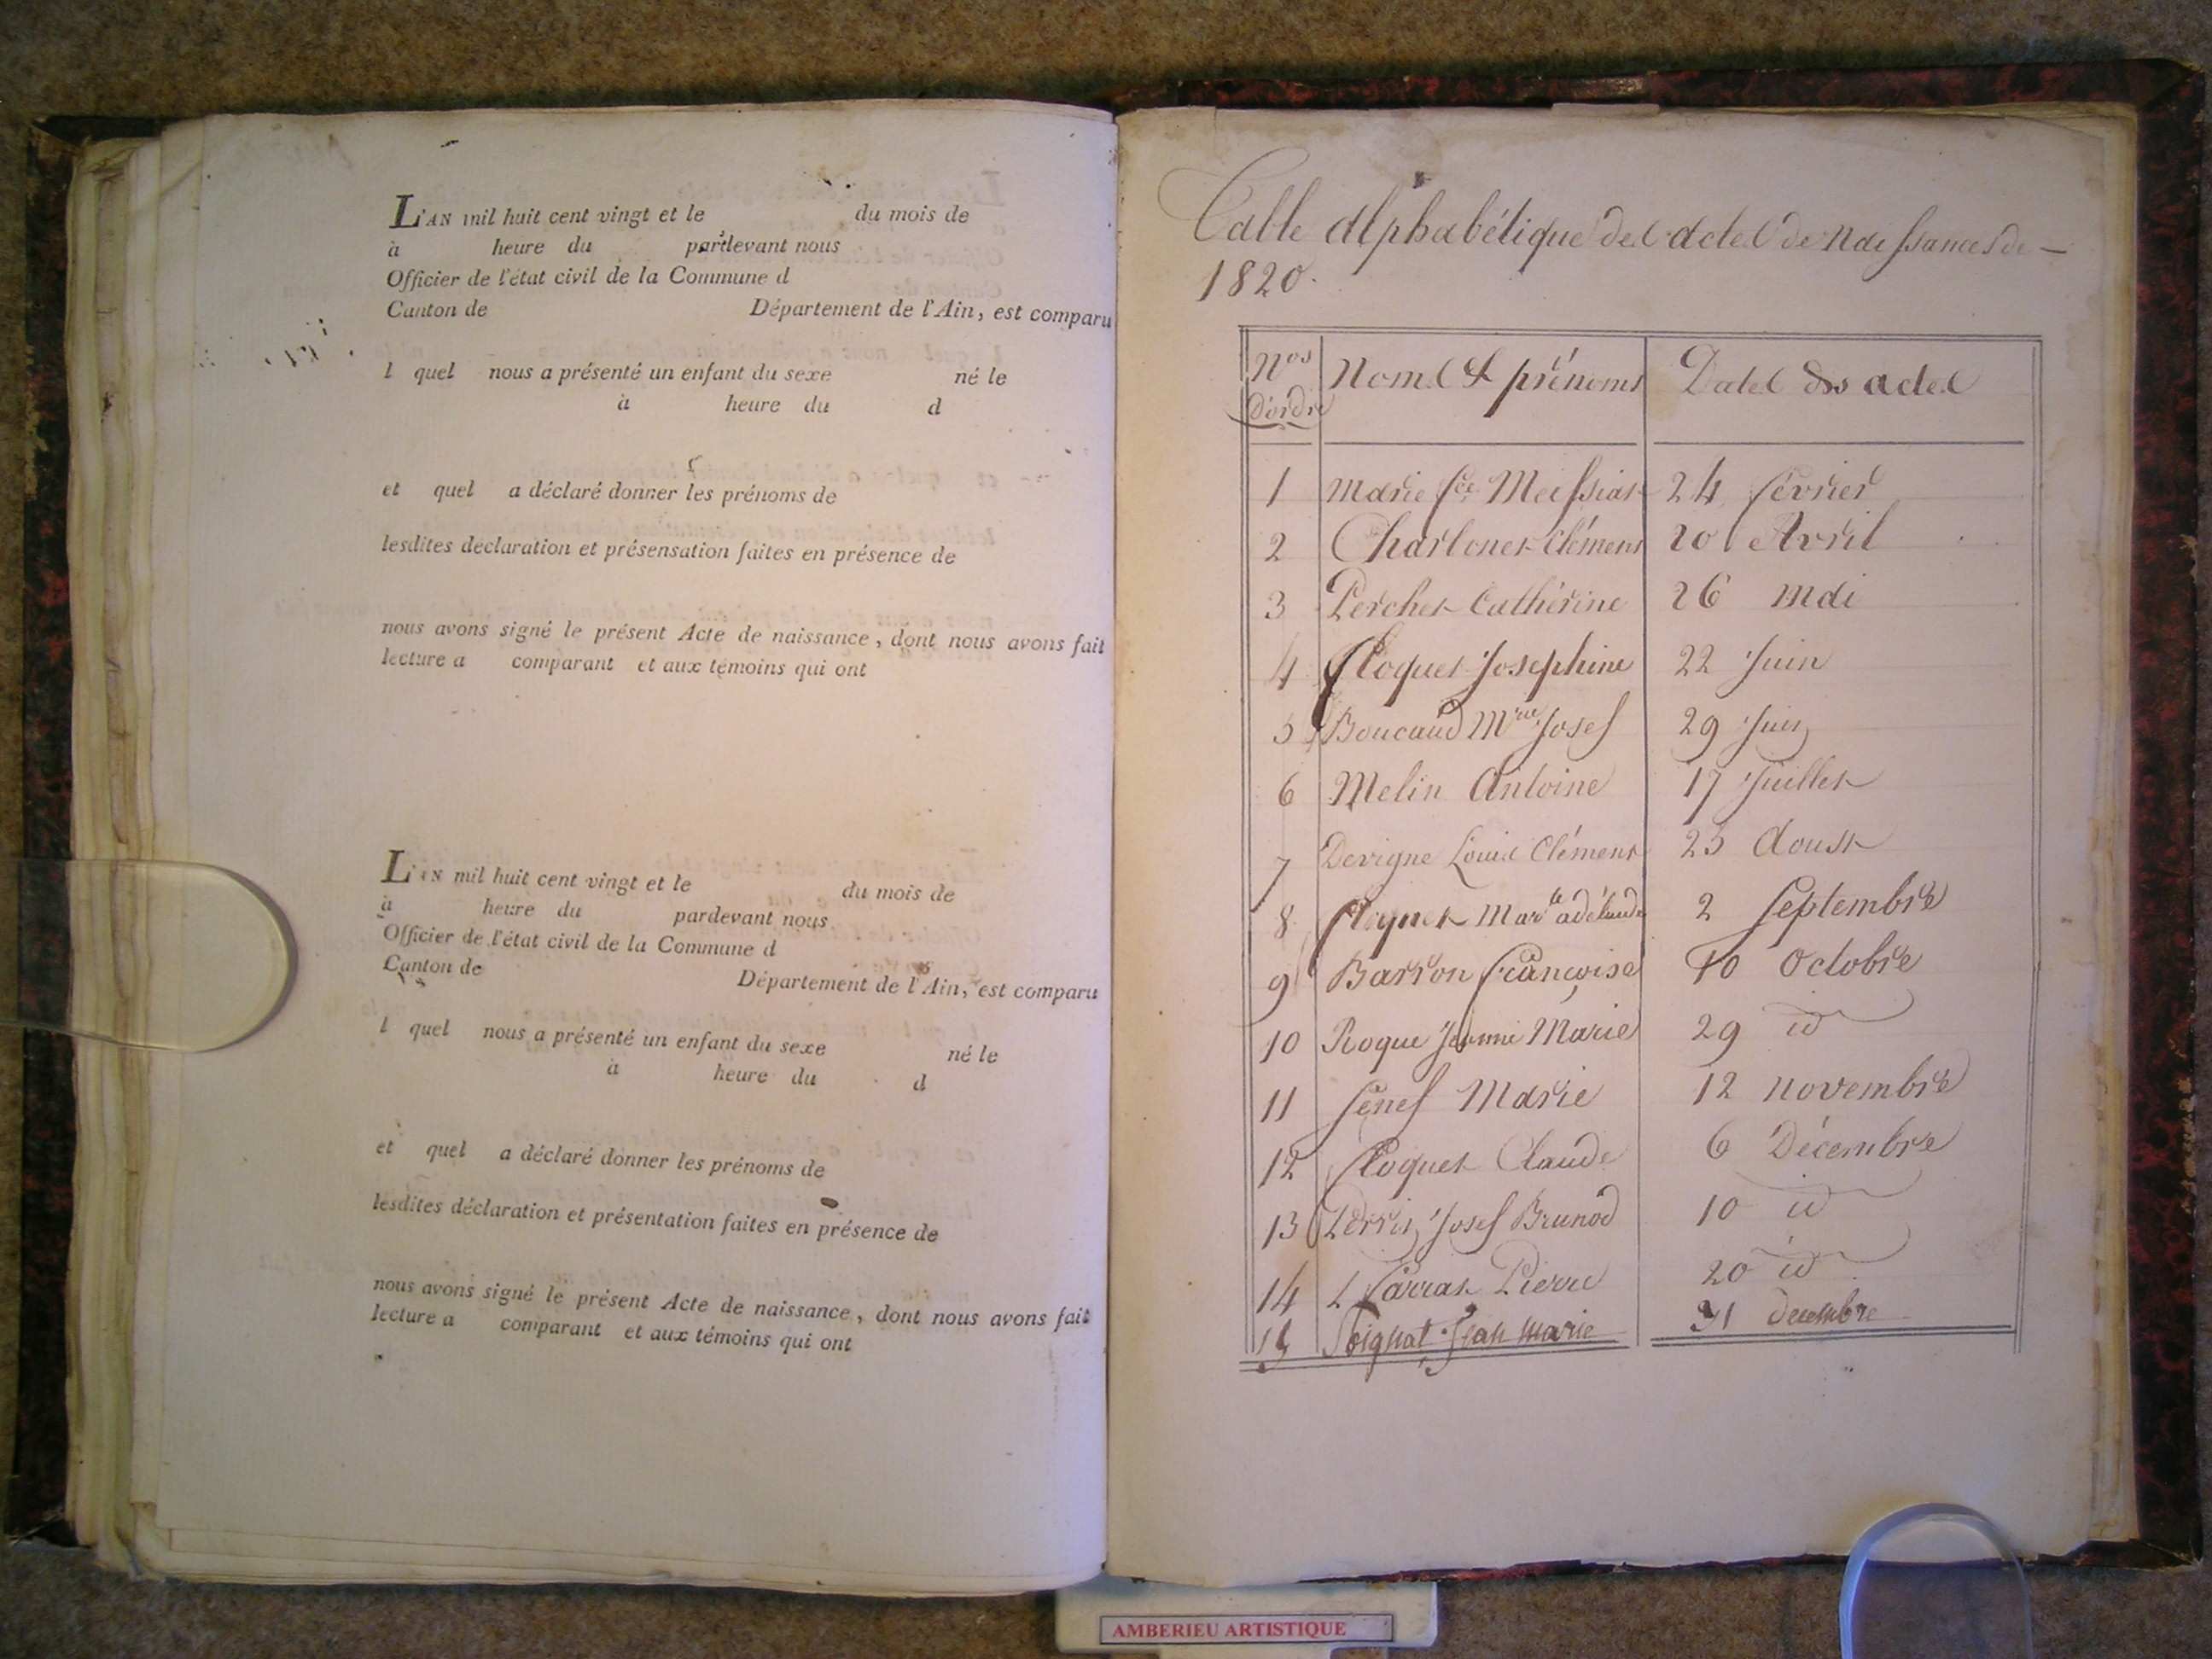 L'AN mil huit cent vingt et le du mois de
à heure du pardevant nous
Officier de l'état civil de la Commune d
Canton de Département de l'Ain, est comparu
l quel nous a présenté un enfant du sexe né le
à heure du d
et quel a déclaré donner les prénoms de
lesdites déclaration et présensation faites en présence de
nous avons signé le présent Acte de naissance, dont nous avons fait
lecture a comparant et aux témoins qui ont
L'AN mil huit cent vingt et le du mois de
à heure du pardevant nous
Officier de l'état civil de la Commune d
Canton de Département de l'Ain, est comparu
l quel nous a présenté un enfant du sexe né le
à heure du d
et quel a déclaré donner les prénoms de
lesdites déclaration et présentation faites en présence de
nous avons signé le présent Acte de naissance, dont nous avons fait
lecture a comparant et aux témoins qui ont
Table alphabétique des actes de Naissances de
1820.
Nos d'ordre Noms & prénoms Dates des actes
1 Marie fse Meissiat 24 février
2 Charlonet Clément 20 Avril
3 Perchet Cathérine 26 Mai
4 Josephine 22 Juin
5 Boucaud Mrie Josef 29 Juin
6 Melin Antoine 17 Juillet
7 Devigne Louis Clément 25 Aoust
8 adélaide 2 Septembre
9 Barron françoise 10 Octobre
10 Roque Jeanne Marie 29 id
11 Marie 12 Novembre
12 Claude 6 Décembre
13 Josef Brunod 10 id
14 Pierre 20 id
15 Jean Marie 31 decembre
AMBERIEU ARTISTIQUE